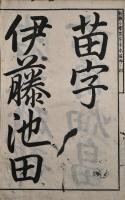 苗字
伊藤池田